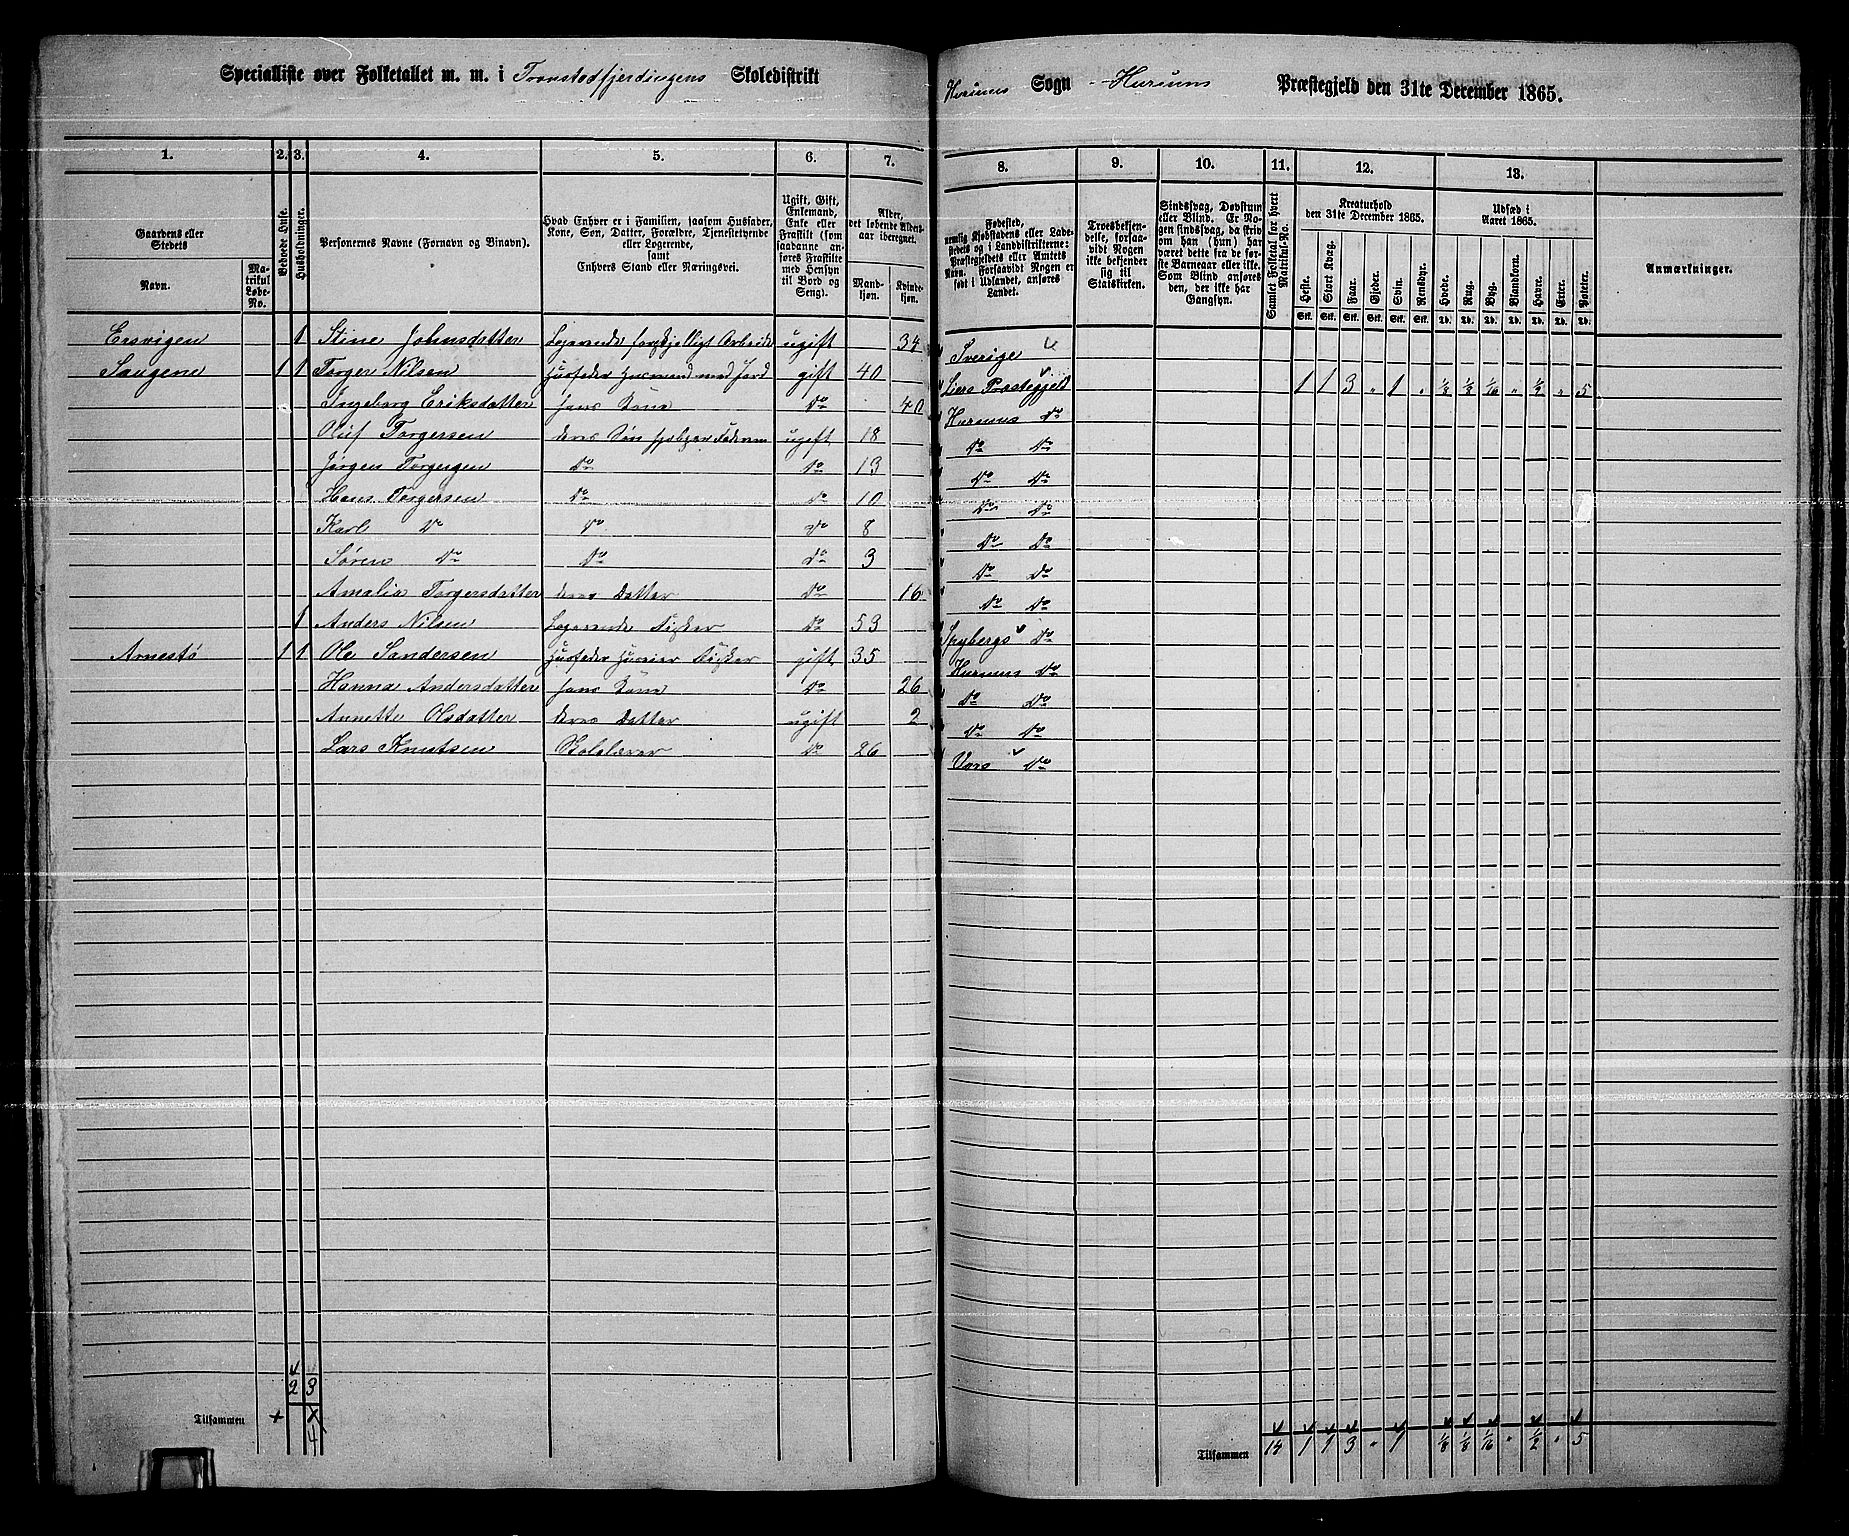 Specialliste over Folketallet m. m. i Tronstadfjerdingens Skoledistrikt Hurums Sogn Hurums Præstegjeld den 31te December 1865.
1. 2. 3. 4. 5. 6. 7. 8. 9. 10. 11. 12. 13.
Gaardens eller Stedets
Navn.
Matrikul Løbe-No.
Beboede Huse.
Husholdninger.
Personernes Navne (Fornavn og Binavn).
Hvad Enhver er i Familien, saasom Husfader, Kone, Søn, Datter, Forældre, Tjenestetyende eller Logerende, samt Enhvers Stand eller Næringsvei.
Ugift, Gift, Enkemand, Enke eller Fraskilt (som saadanne anføres Fraskilte med Hensyn til Bord og Seng).
Alder, det løbende Alders-aar iberegnet.
Mandkjøn. Kvindekjøn.
Fødested, nemlig Kjøbstadens eller Ladestedets og i Landdistrikterne: Præstegjeldets eller Amtets Navn. Forsaavidt Nogen er født i Udlandet, anføres Landet.
Troesbekjendelse, forsaavidt Nogen ikke bekjender sig til Statskirken.
Sindssvag, Døvstum eller Blind. Er Nogen sindssvag, da skriv om han (hun) har været dette fra de første Barneaar eller ikke. Som Blind anføres den, der ikke har Gangsyn.
Samlet Folketal for hvert Matrikul-No.
Kreaturhold den 31te December 1865.
Heste. Stort Kvæg. Faar. Gjeder. Svin. Rensdyr.
Stk. Stk. Stk. Stk. Stk. Stk.
Udsæd i Aaret 1865.
Hvede. Rug. Byg. Blandkorn. Havre. Erter. Poteter.
Td. Td. Td. Td. Td. Td. Td.
Anmærkninger.
Ersvigen 1 Stine Johnsdatter Logerende forskjelligt Arbeide ugift 34 Sverige
Saugene 1 1 Torger Nilsen Husfader Husmand med Jord gift 40 Liers Præstegjeld 1 1 3 " 1 " 1/8 1/8 1/16 " 1/2 " 5
Ingeborg Eriksdatter hans Kone Do 40 Hurums Do
Oluf Torgersen deres Søn ugift 18 Do Do
Jørgen Torgersen Do Do 13 Do Do
Hans Torgersen Do Do 10 Do Do
Karl Do Do Do 8 Do Do
Søren Do Do Do 3 Do Do
Amalia Torgersdatter deres Datter Do 16 Do Do
1 Anders Nilsen Logerende Fisker Do 53 Spybergs Do
Arnestø 1 1 Ole Sandersen Husfader Huseier Fisker gift 35 Hurums Do
Hanna Andersdatter hans Kone Do 26 Do Do
Annette Olsdatter deres Datter ugift 2 Do Do
Lars Knutsen Skolelærer Do 26 Vors Do
2 3
Tilsammen + 4
Tilsammen 14 1 1 3 " 1 1/8 1/8 1/16 " 1/2 " 5